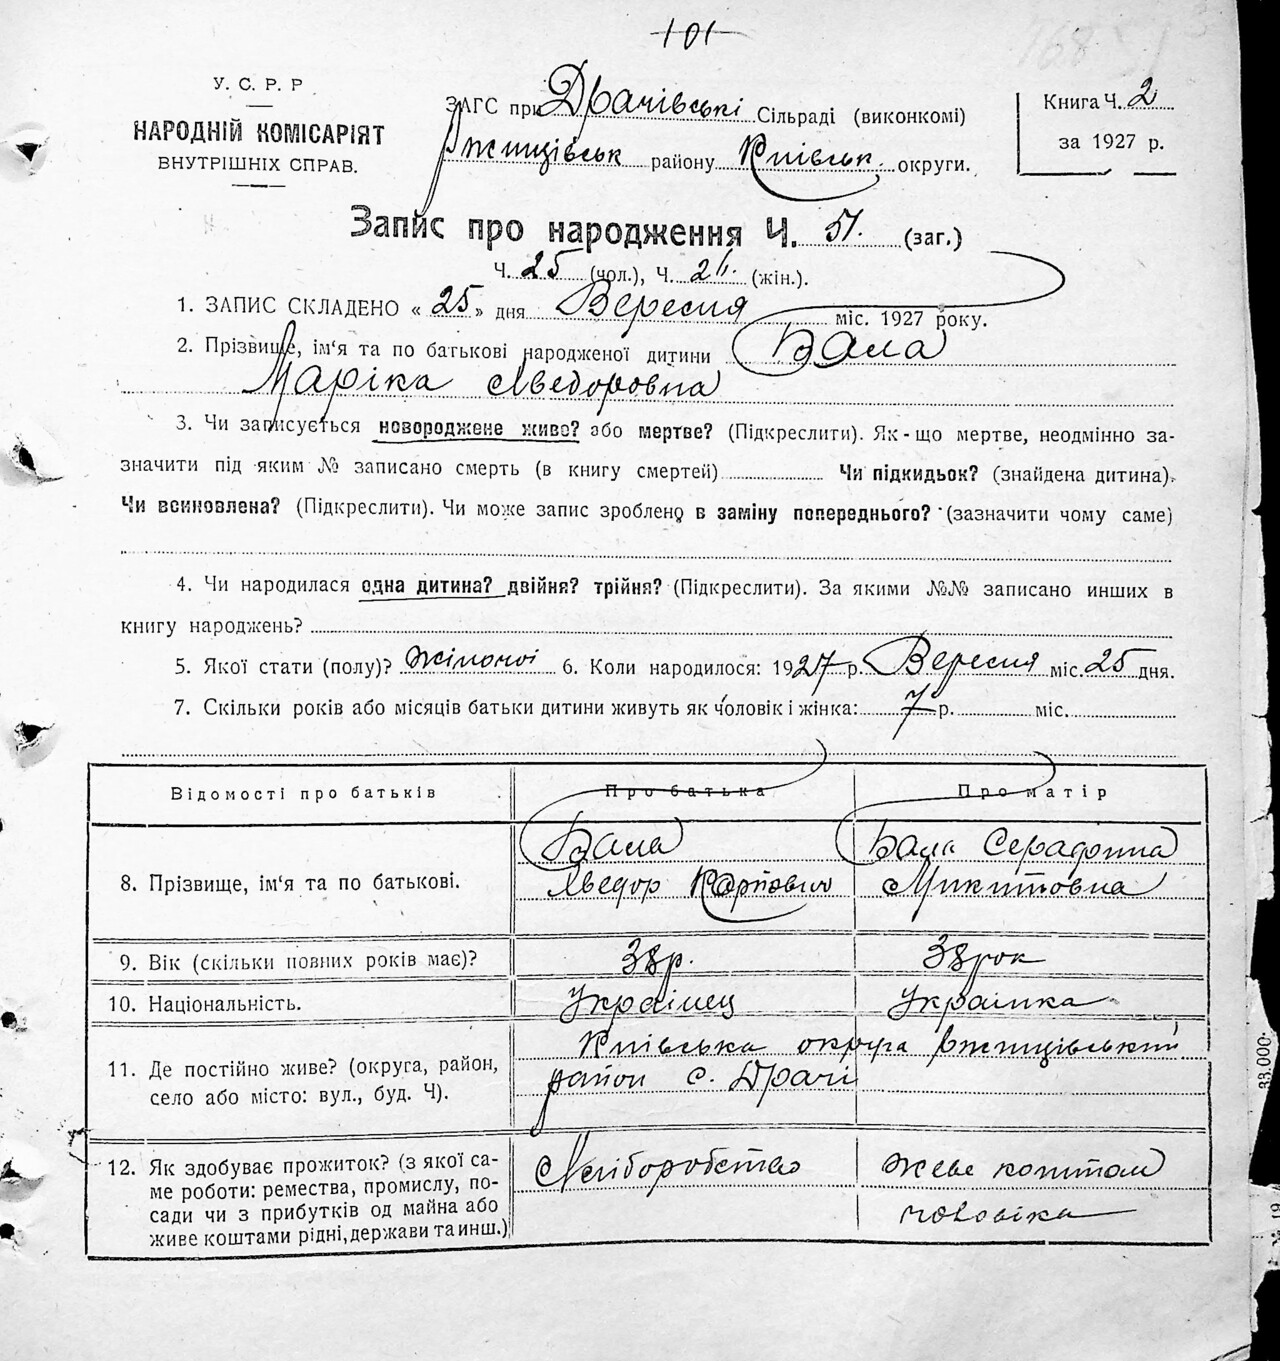 101
У. С. Р. Р
НАРОДНІЙ КОМІСАРІЯТ
ВНУТРІШНІХ СПРАВ.
ЗАГС при Драчівські Сільраді (виконкомі)
Ржищівськ району Київськ. округи.
Книга Ч. 2
за 1927 р.
Запис про народження Ч. 51. (заг.)
Ч. 25 (чол.), Ч. 26. (жін.).
1. ЗАПИС СКЛАДЕНО « 25 » дня Вересня міс. 1927 року.
2. Прізвище, ім‘я та по батькові народженої дитини Бала
Маріка Хведоровна
3. Чи записується новороджене живе? або мертве? (Підкреслити). Як-що мертве, неодмінно за-
значити під яким № записано смерть (в книгу смертей) Чи підкидьок? (знайдена дитина).
Чи всиновлена? (Підкреслити). Чи може запис зроблено в заміну попереднього? (зазначити чому саме)
4. Чи народилася одна дитина? двійня? трійня? (Підкреслити). За якими №№ записано инших в
книгу народжень?
5. Якої стати (полу)? Жіночої 6. Коли народилося: 1927 р. Вересня міс. 25 дня.
7. Скільки років або місяців батьки дитини живуть як чоловік і жінка: 7 р. міс.
Відомості про батьків Про батька Про матір
Бала Бала Серафіма
8. Прізвище, ім‘я та по батькові. Хведор Карпович Микитовна
9. Вік (скільки повних років має)? 38 р. 38 рок
10. Національність. Українец Украінка
Київська округа Ржищівський
11. Де постійно живе? (округа, район, район с. Драчі
село або місто: вул., буд. Ч).
12. Як здобуває прожиток? (з якої са- Хліборобство живе коштом
ме роботи: ремества, промислу, по-
сади чи з прибутків од майна або чоловіка
живе коштами рідні, держави та инш.)
33.000